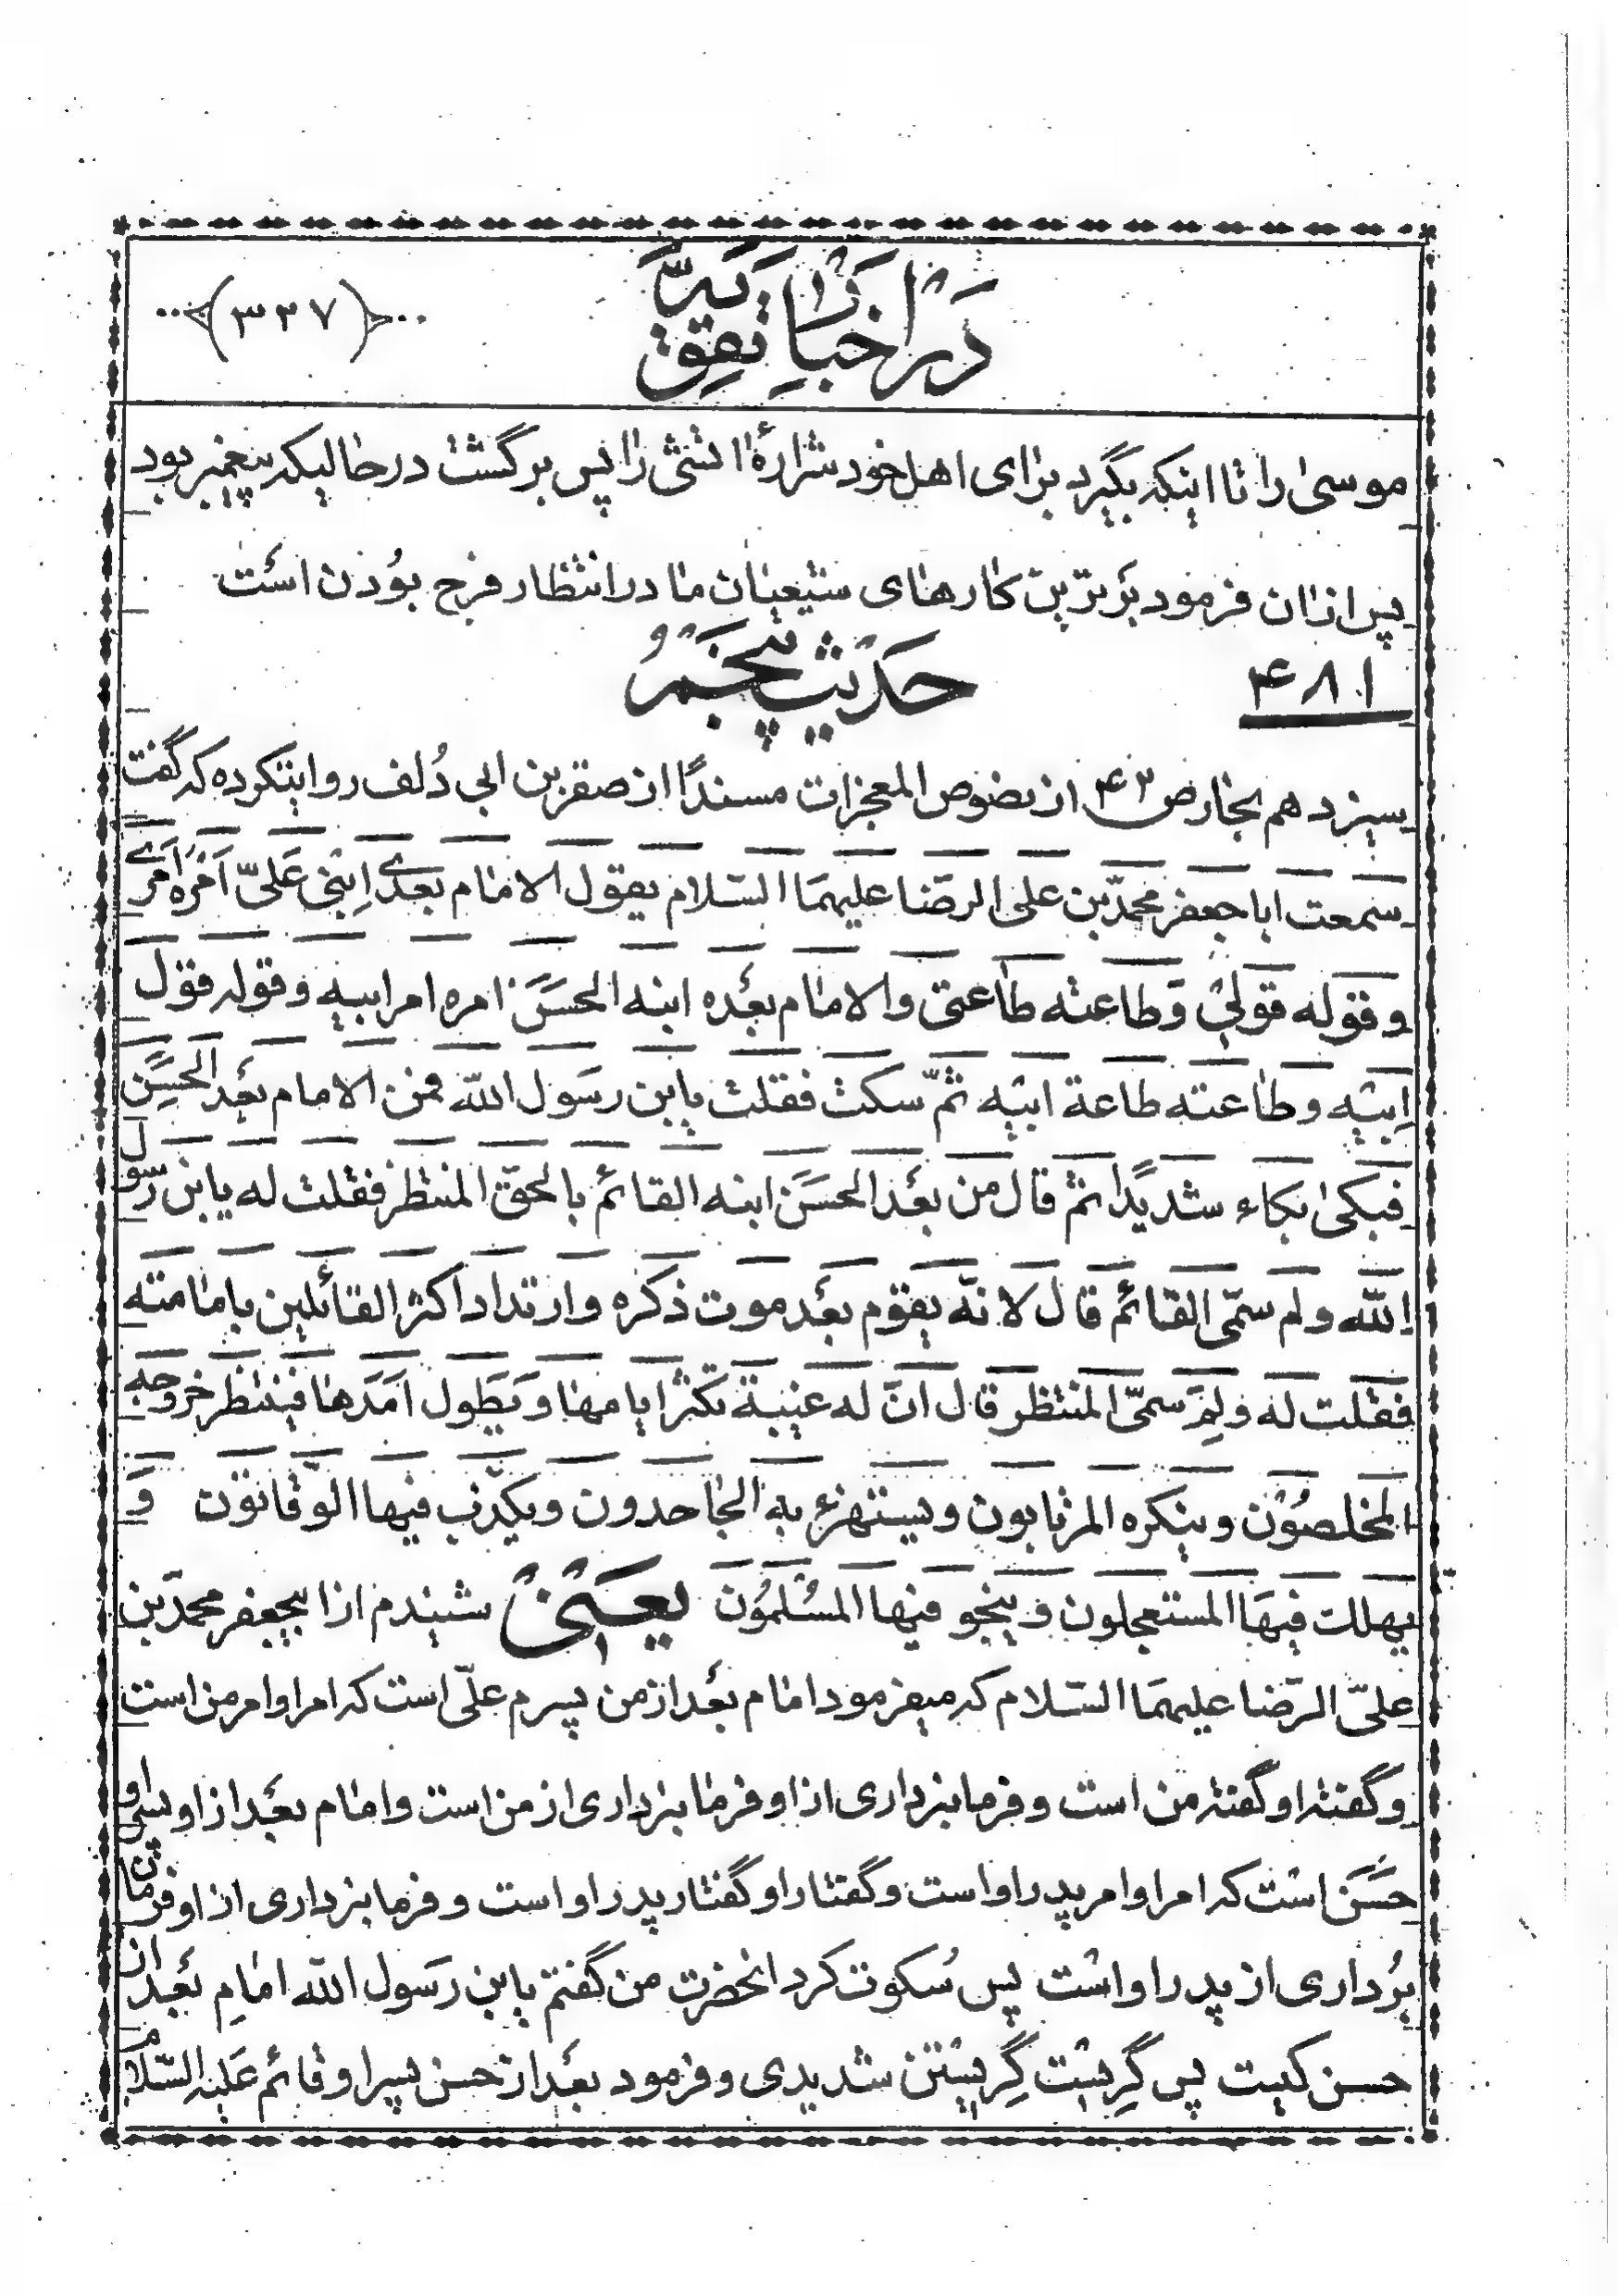 در اخبار تقیّه
(۳۳۷)
موسی را تا اینکه بگیرد برای اهل خود شرارۀ اتشی را پس برگشت در حالیکه پیغمبر بود
پس از ان فرمود برترین کارهای شیعیان ما در انتظار فرج بودن است
حدیث پنجم
۴۸۱
سیزدهم بحار ص ۴۳ از نصوص المعجزات مسنداً از صقر بن ابی دُلف روایتکرده که گفت
سمعت ابا جعفر محمّد بن علی الرضا علیهما السّلام یقول الامام بعدی اِبنی عَلیّ اَمرُه اَمری
و قوله قولی وَ طاعته طاعتی والامام بعده ابنه الحسَنَ امره امر ابیه و قوله قول
اَبیه و طاعته طاعة ابیه ثمّ سکت فقلت یابن رسَول الله فمن الامام بعد الحسَن
فبکی بکاء شدیدًا ثم قال من بعد الحسَن ابنه القائم بالحقّ المنتظر فقلت له یابن رسول
الله و لم سمّی القائم قال لانّه یقوم بعد موت ذکره و ارتداد اکثر القائلین بامامته
فقلت له و لِمَ سمّی المنتظر قال انّ له غیبة تکثر ایامها و یَطول اَمَدها فینتظر خروجه
المخلصُون و ینکره المرتابون و یستهزء به الجاحدون و یکذّب فیها الوقّاتون وَ
یهلک فیهَا المستعجلون و ینجو فیها المسُلموُن یعنی شنیدم از ابیجعفر محمّد بن
علیّ الرّضا علیهمَا السّلام که میفرمود امام بعد از من پسرم علّی است که امر او امر من است
و گفتۀ او گفتۀ من است و فرمانبرداری از او فرمانبرداری از من است و امام بعد از او پسر او
حسَن است که امر او امر پدر او است و گفتار او گفتار پدر او است و فرمانبرداری از او فرمان
برُداری از پدر او است پس سُکوت کرد انحضرت من گفتم یابن رسَول الله امامِ بعد از
حسن کیست پس گِریست گِریستن شدیدی و فرمود بعد از حسن پسر او قائم عَلیه السّلام